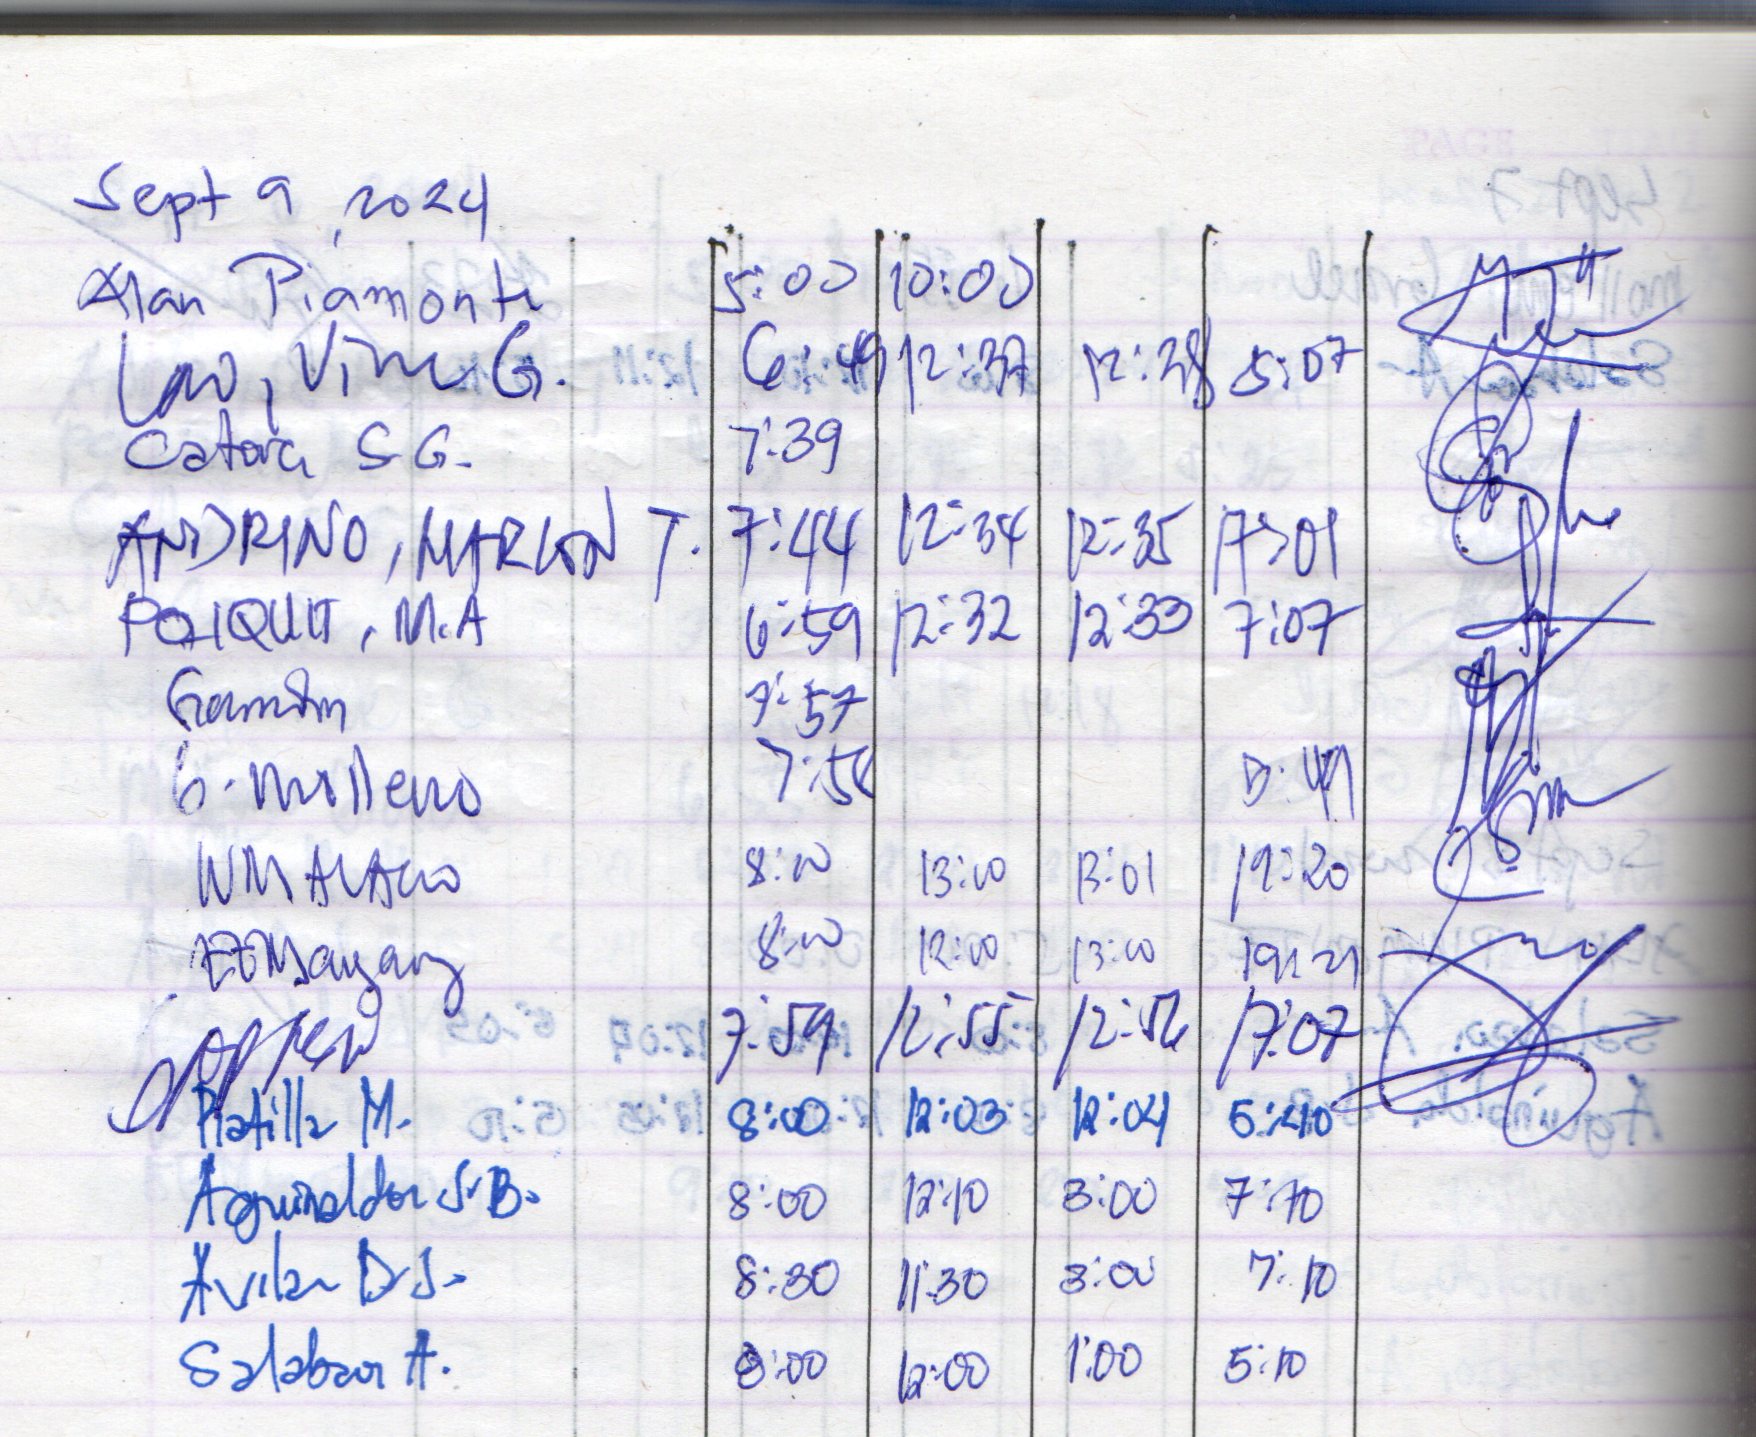 Sept 9, 2024
Alan Piamonte 5:00 10:00
Lao, Vim G. 6:49 12:37 12:38 5:07
Catora S G. 7:39
ANDRINO, MARLON T. 7:44 12:34 12:35 17:01
POLIQUIT, M.A 6:59 12:32 12:33 7:07
7:57
G. Molleno 7:56
8:00 13:00 13:01 19:20
8:00 12:00 13:00 19:21
7:59 12:55 12:56 17:07
Platilla M. 8:00 12:03 12:04 5:40
Aguinaldo S.B. 8:00 12:10 3:00 7:10
Avila D.J. 8:30 11:30 3:00 7:10
Salabao A. 8:00 12:00 1:00 5:10